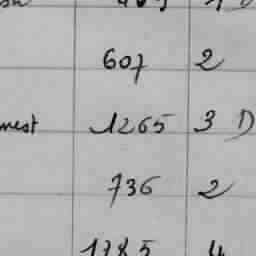 607 2
nest 1265 3 D
736 2
1785 4